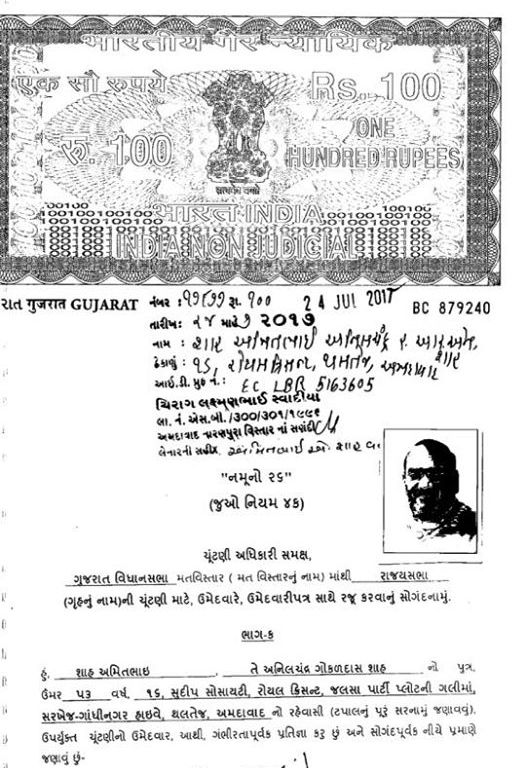 भारतीय गैर न्यायिक
एक सौ रुपये Rs. 100
रु. 100 ONE
HUNDRED RUPEES
सत्यमेव जयते
भारत INDIA
INDIA NON JUDICIAL
રાત ગુજરાત GUJARAT નંબર : રૂ. ૧૦૦ 24 JUL 2017 BC 879240
તારીખ: ૨૦૧૭
નામ : શાહ અમિતભાઈ
ઠેકાણું : ૧૬, થલતેજ, અમદાવાદ
આઈ.ડી. પ્રુફ નં.: EC LBR 5163605
ચિરાગ લક્ષ્મણભાઈ સ્વાદીયા
લા. નં. એસ.બી. /300/301/૧૯૯૬
અમદાવાદ નારણપુરા વિસ્તાર ના
લેનારની સહી
"નમૂનો ૨૬"
(જુઓ નિયમ ૪ક)
ચૂંટણી અધિકારી સમક્ષ,
ગુજરાત વિધાનસભા મતવિસ્તાર ( મત વિસ્તારનું નામ) માંથી રાજયસભા
(ગૃહનું નામ)ની ચૂંટણી માટે, ઉમેદવારે, ઉમેદવારીપત્ર સાથે રજૂ કરવાનું સોગંદનામું.
ભાગ-ક
હું, શાહ અમિતભાઇ , તે અનિલચંદ્ર ગોકળદાસ શાહ નો પુત્ર,
ઉમર ૫૩ વર્ષ, ૧૬, સુદીપ સોસાયટી, રોયલ ક્રિસન્ટ, જલસા પાર્ટી પ્લોટની ગલીમાં,
સરખેજ-ગાંધીનગર હાઇવે, થલતેજ, અમદાવાદ નો રહેવાસી (ટપાલનું પૂરૂ સરનામું જણાવવું).
ઉપર્યુક્ત ચૂંટણીનો ઉમેદવાર, આથી, ગંભીરતાપૂર્વક પ્રતિજ્ઞા કરૂ છું અને સોગંદપૂર્વક નીચે પ્રમાણે
જણાવું છું-